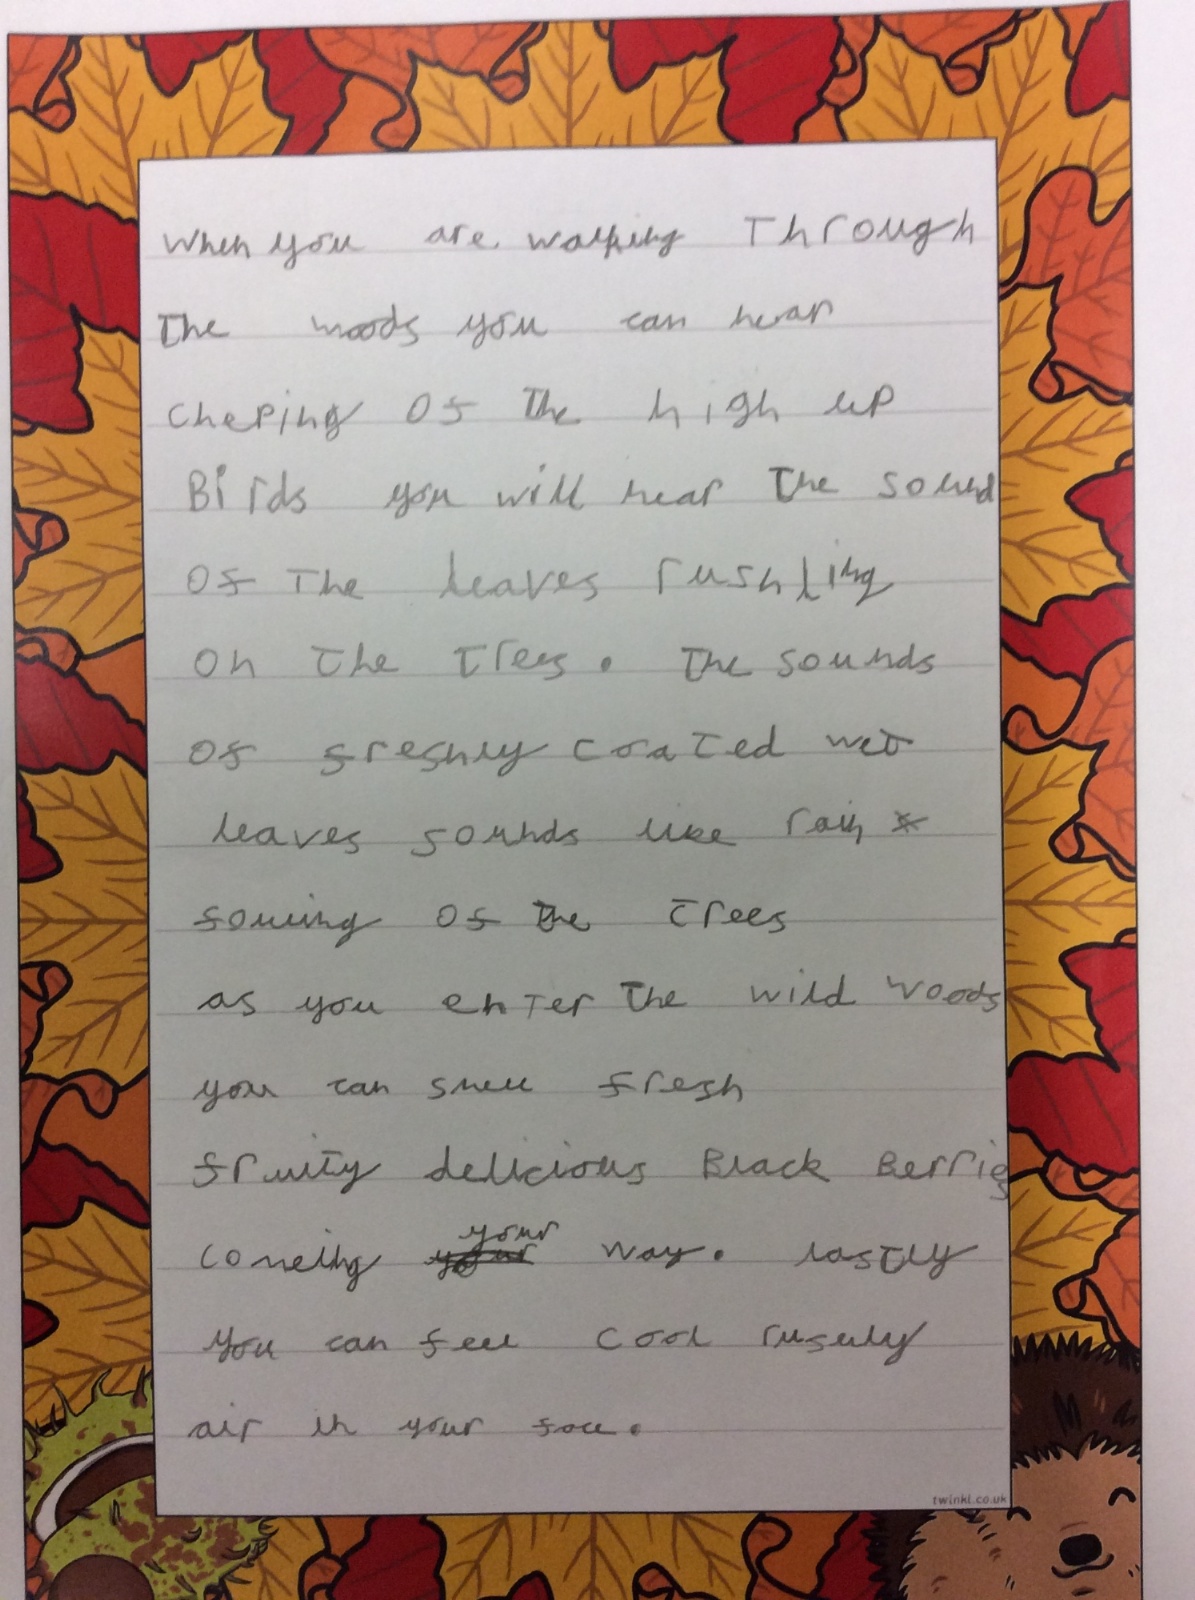 When you are walking Through
The woods you can hear
cheping Of The high up
Birds you will hear The sound
Of The leaves rushling
On The Trees. The sounds
Of freshly coaTed wet
leaves sounds like rain
fowing Of The Trees
as you enTer The wild woods
you can smell fresh
fruity delicious Black Berries
comeing your way. lastly
you can feel cool
air in your face.
twinkl.co.uk